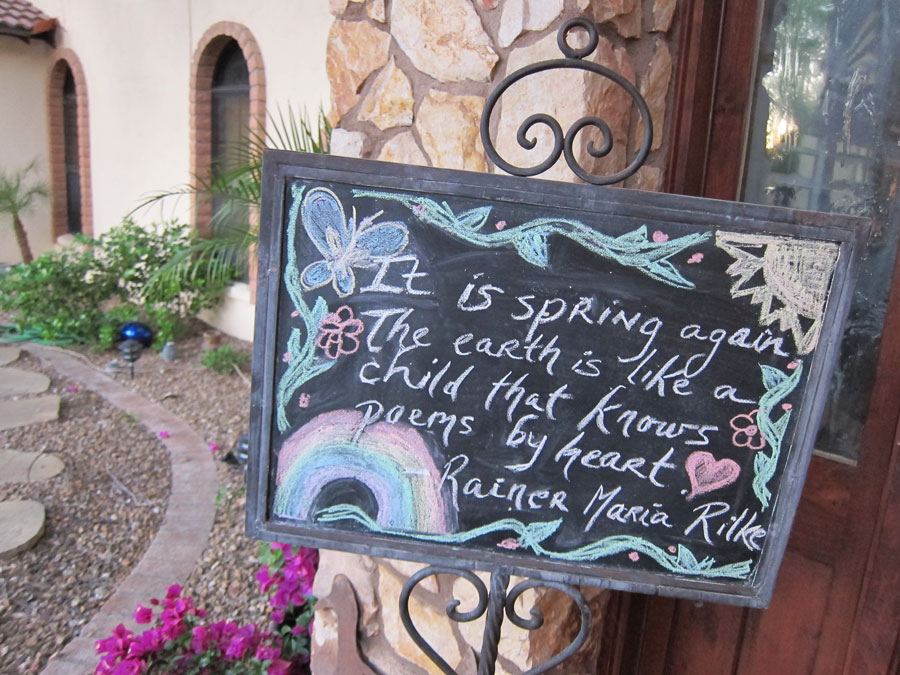 It is spring again.
The earth is like a
child that knows
poems by heart.
- Rainer Maria Rilke